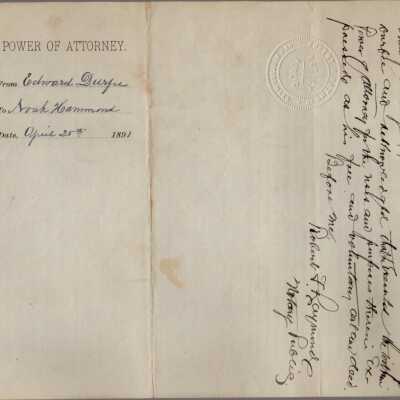 POWER OF ATTORNEY.
From Edward Durfee
to Noah Hammond
Date, April 25th 1891
Durfee and acknowledged that he executed the within
Power of Attorney for the uses and purposes therein Ex-
pressed, as his free and voluntary act and deed.
Before me,
Robert F. Raymond
Notary Public